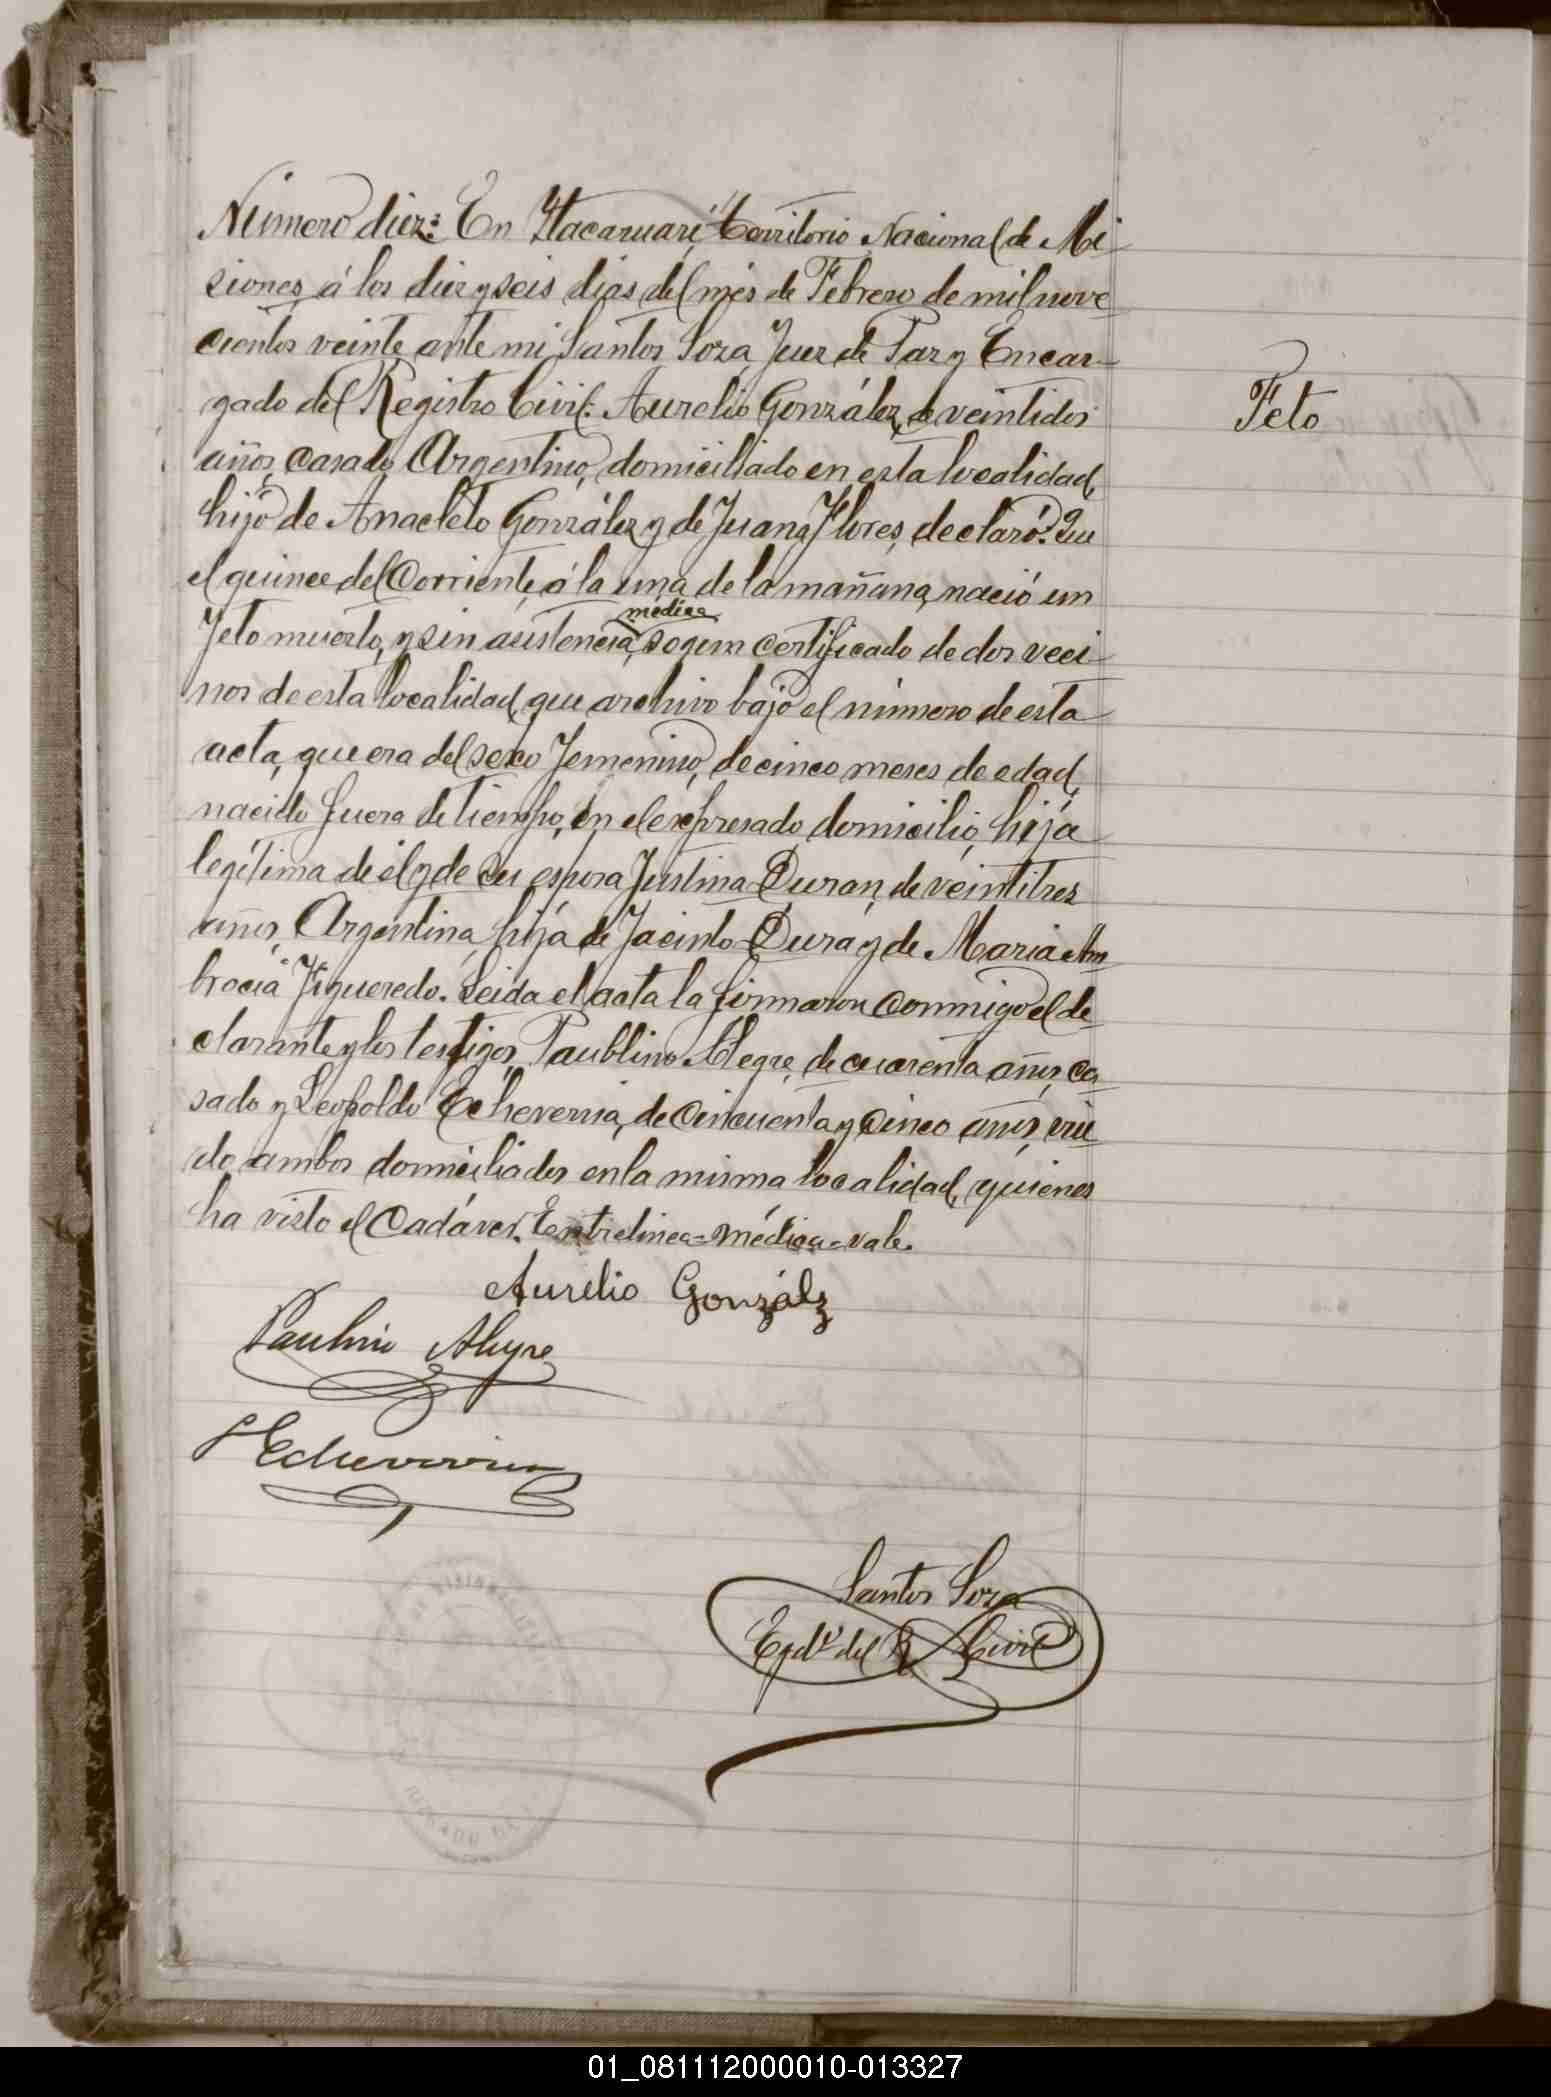 Número diez: En Itacaruaré, territorio Nacional de Mi
siones á los diez y seis dias del més de Febrero de mil nove
cientos veinte, ante mi Santos Soza, Juez de Paz y Encar-
gado del Registro Civil: Aurelio González, de veintidos
años, casado, Argentino, domiciliado en esta localidad,
hijo de Anacleto González y de Juana Flores, declaró: Que
el quince del Corriente, á la una de la mañana, nació un
médica
feto muerto, y sin asistencia, segun certificado de dos veci-
nos de esta localidad, que archivo bajo el número de esta
acta, que era del sexo femenino, de cinco meses de edad,
nacido fuera de tiempo, en el expresado domicilio, hija
legítima de él y de su esposa Justina Duran, de veintitres
años, Argentina, hija de Jacinto Durá y de Maria Am
bracia Figueredo. Leida el acta la firmaron conmigo el de
clarante y los testigos, Paublino Alegre, de cuarenta años, ca
sado y Leopoldo Echeverria, de cincuenta y cinco años, viu
do, ambos domiciliados en la misma localidad, quienes
ha visto el Cadáver. Entrelinea=médica=vale.
Feto
Aurelio Gonzálz
Paulino Alegre
L Echeverria
Santos Soza
Egdo. del R. Civil
01_081112000010-013327